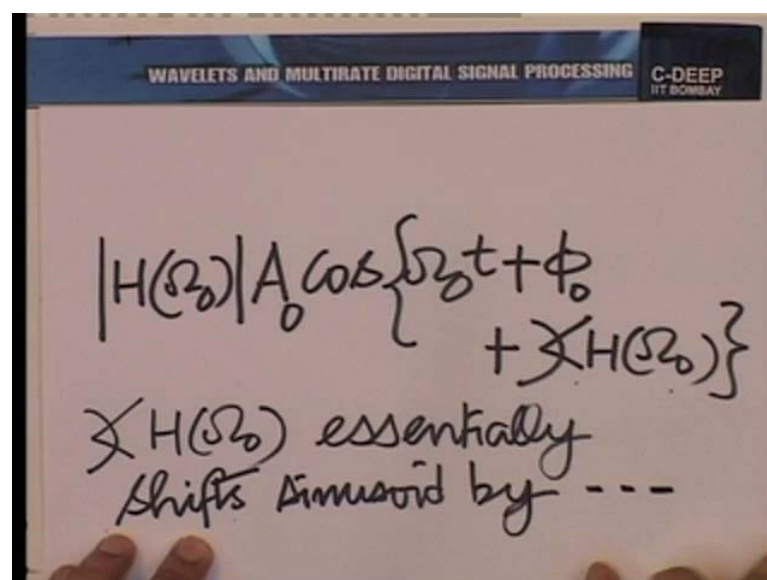 WAVELETS AND MULTIRATE DIGITAL SIGNAL PROCESSING
C-DEEP
IIT BOMBAY
|H(Ω₀)| A₀ cos{Ω₀t + ϕ₀
+ ∡H(Ω₀)}
∡H(Ω₀) essentially
shifts sinusoid by ---